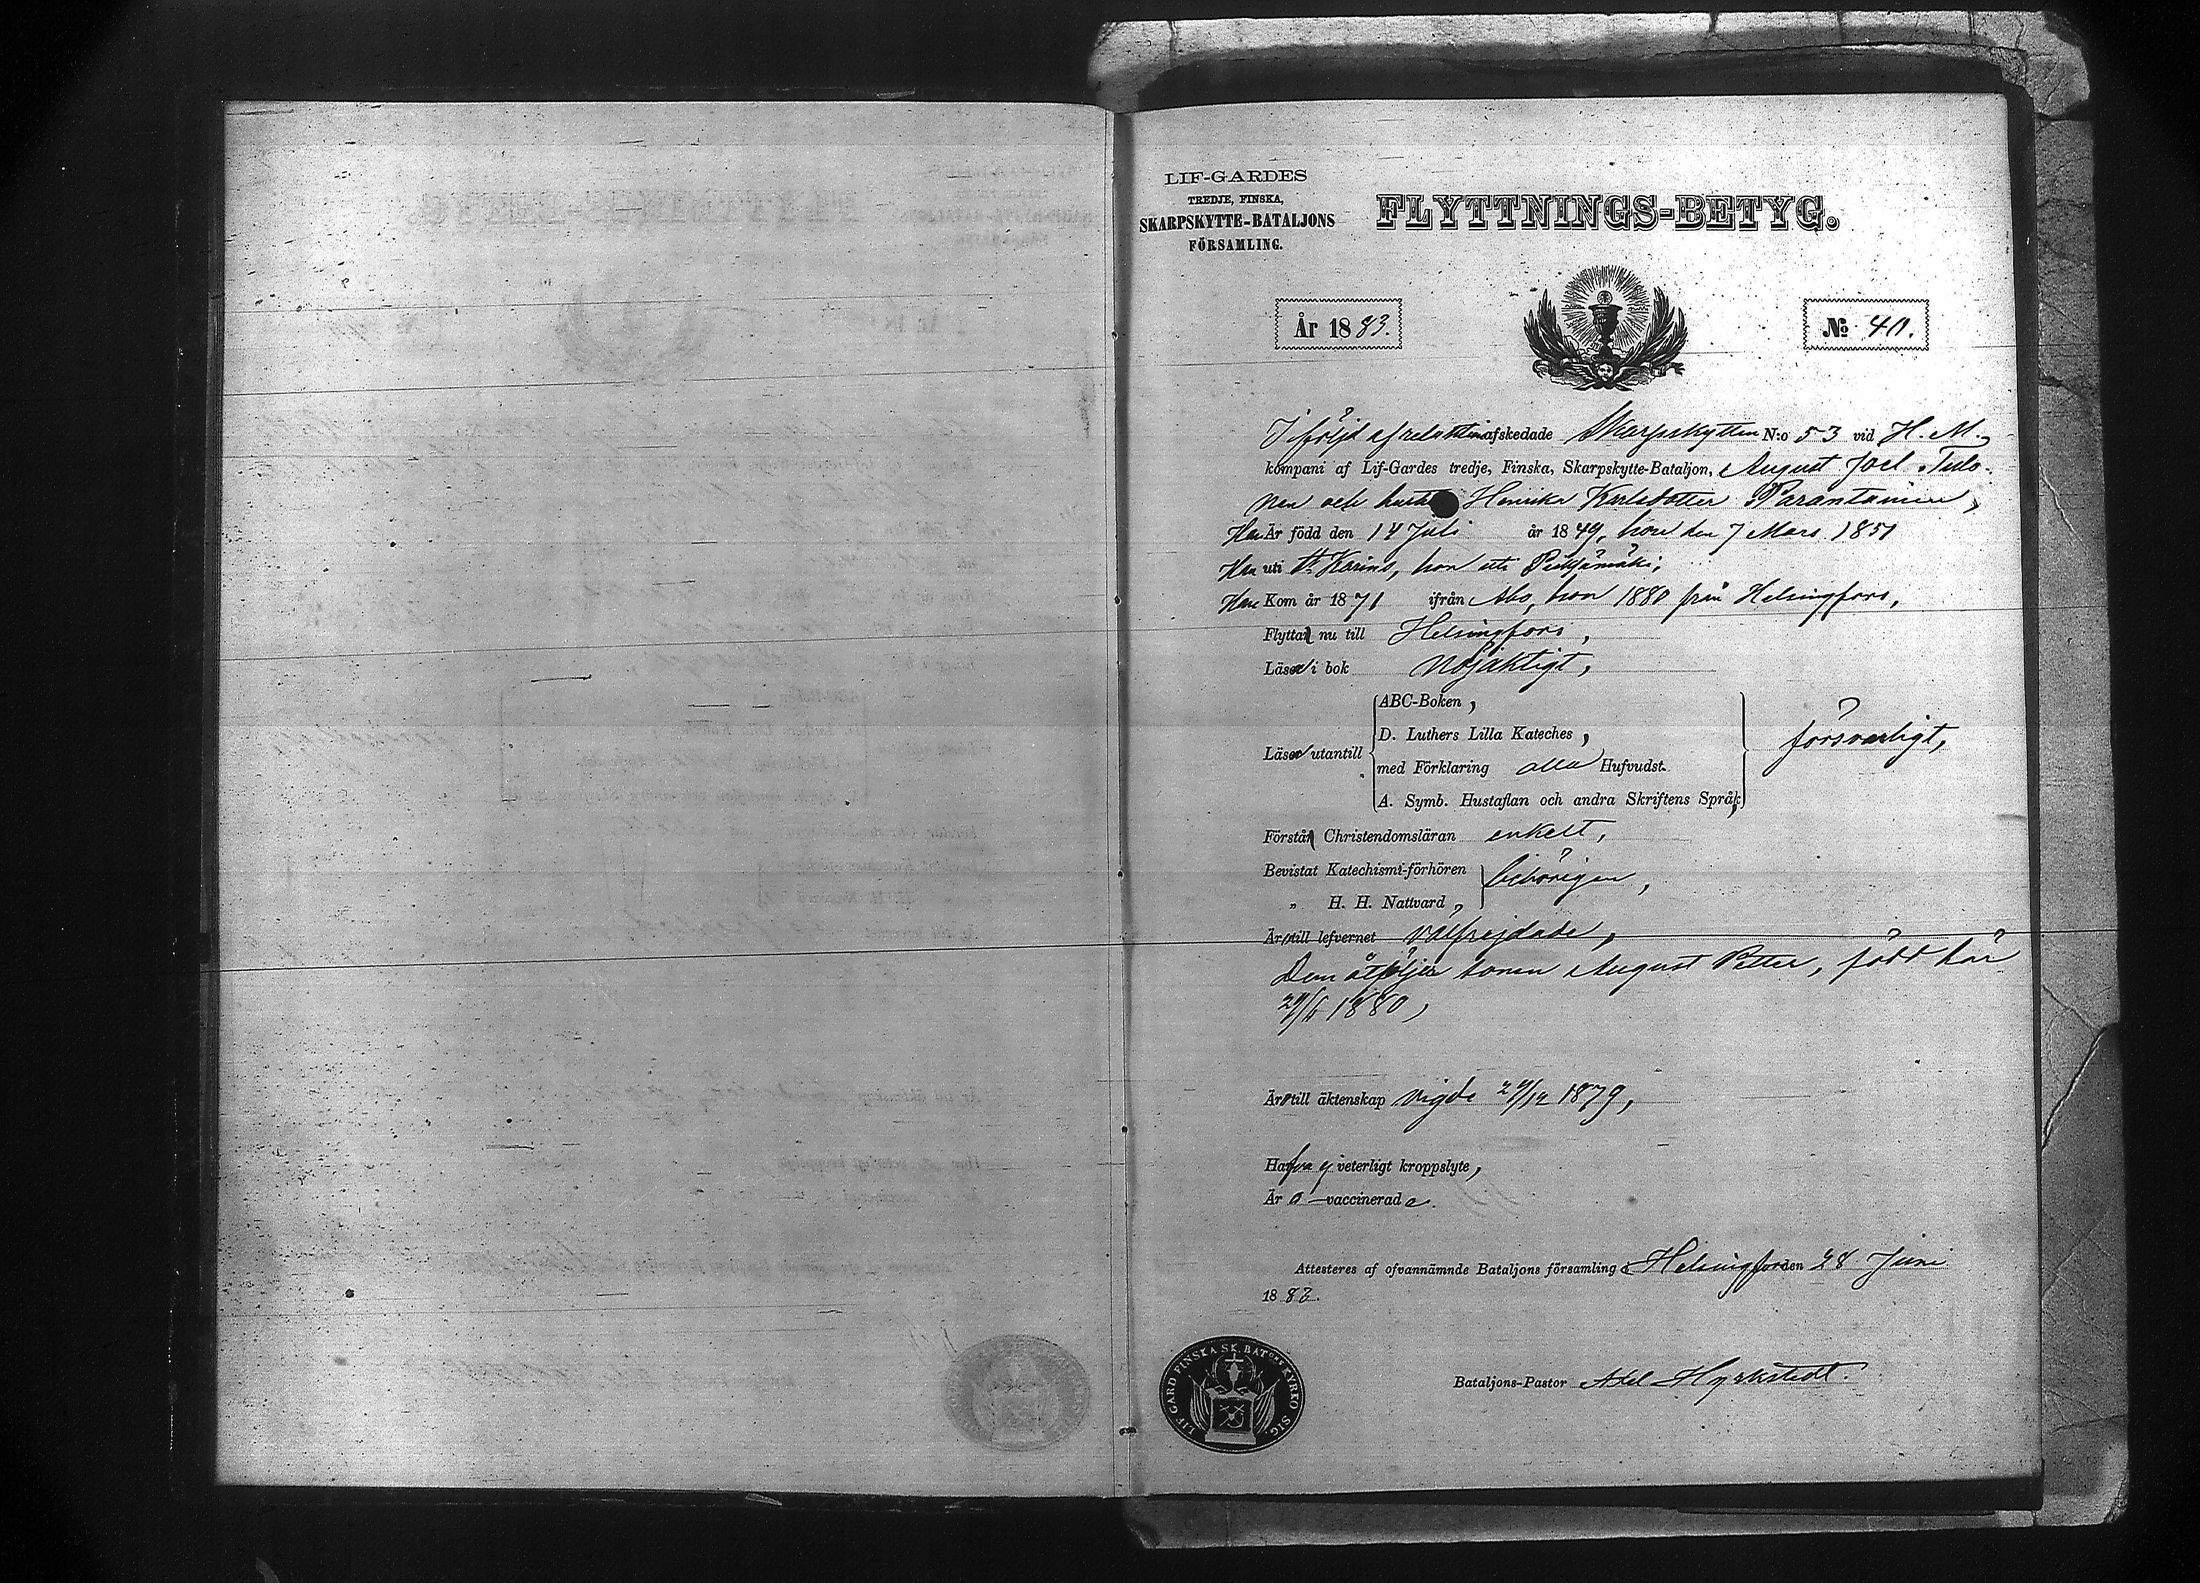 LIF-GARDES
TREDJE, FINSKA,
SKARPSKYTTE-BATALJONS
FÖRSAMLING.
FLYTTNINGS-BETYG.
År 1883.
No 40.
I följd af reduktion afskedade Skarpskytten N:o 53 vid H. M.
kompani af Lif-Gardes tredje, Finska, Skarpskytte-Bataljon, August Joel Tulo-
nen och hustru Henrika Karlsdotter Parantainen,
Han Är född den 14 Juli år 1849, hon den 7 Mars 1851
Han uti St Karins, hon uti Pieksämäki,
Han Kom år 1871 ifrån Åbo, hon 1880 från Helsingfors,
Flytta nu till Helsingfors,
Läsa i bok nöjaktigt,
ABC-Boken,
D. Luthers Lilla Kateches,
Läsa utantill
med Förklaring alla Hufvudst.
försvarligt,
A. Symb. Hustaflan och andra Skriftens Språk,
Förstå Christendomsläran enkelt,
Bevistat Katechismi-förhören behörigen,
„ H. H. Nattvard,
Äro till lefvernet välfrejdade,
Dem åtföljer sonen August Petter, född här
1880,
Äro till äktenskap vigde 29/12 1879,
Hafva ej veterligt kroppslyte,
Äro vaccinerade.
Attesteras af ofvannämnde Bataljons församling Helsingfors den 28 Juni
1883.
LIF GARD FINSKA SK. BATONS KYRKO SIG.
Bataljons-Pastor Axel Hyrkstedt.